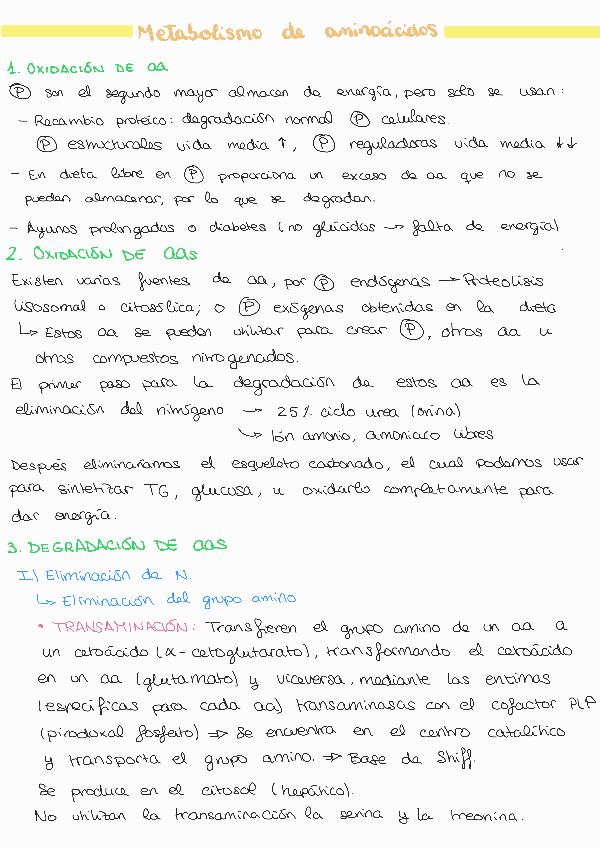 Metabolismo de aminoácidos
1. OXIDACIÓN DE aa
Ⓟ son el segundo mayor almacen de energía, pero solo se usan:
- Recambio proteico: degradación normal Ⓟ celulares.
Ⓟ estructurales vida media ↑, Ⓟ reguladoras vida media ↓↓
- En dieta libre en Ⓟ proporciona un exceso de aa que no se
pueden almacenar, por lo que se degradan.
- Ayunos prolongados o diabetes (no glúcidos → falta de energía)
2. OXIDACIÓN DE aas
Existen varias fuentes de aa, por Ⓟ endógenas → Proteolisis
lisosomal o citosólica; o Ⓟ exógenas obtenidas en la dieta
↳ Estos aa se pueden utilizar para crear Ⓟ, otros aa u
otros compuestos nitrogenados.
El primer paso para la degradación de estos aa es la
eliminación del nitrógeno → 25% ciclo urea (orina)
↳ Ión amonio, amoniaco libres
Después eliminaríamos el esqueleto carbonado, el cual podemos usar
para sintetizar TG, glucosa, u oxidarlo completamente para
dar energía.
3. DEGRADACIÓN DE aas
I) Eliminación de N.
↳ Eliminación del grupo amino
• TRANSAMINACIÓN: Transfieren el grupo amino de un aa a
un cetoácido (α-cetoglutarato), transformando el cetoácido
en un aa (glutamato) y viceversa, mediante las enzimas
(específicas para cada aa) transaminasas con el cofactor PLP
(pirodoxal fosfato) ⇒ Se encuentra en el centro catalítico
y transporta el grupo amino. ⇒ Base de Shiff.
Se produce en el citosol (hepático).
No utilizan la transaminación la serina y la treonina.